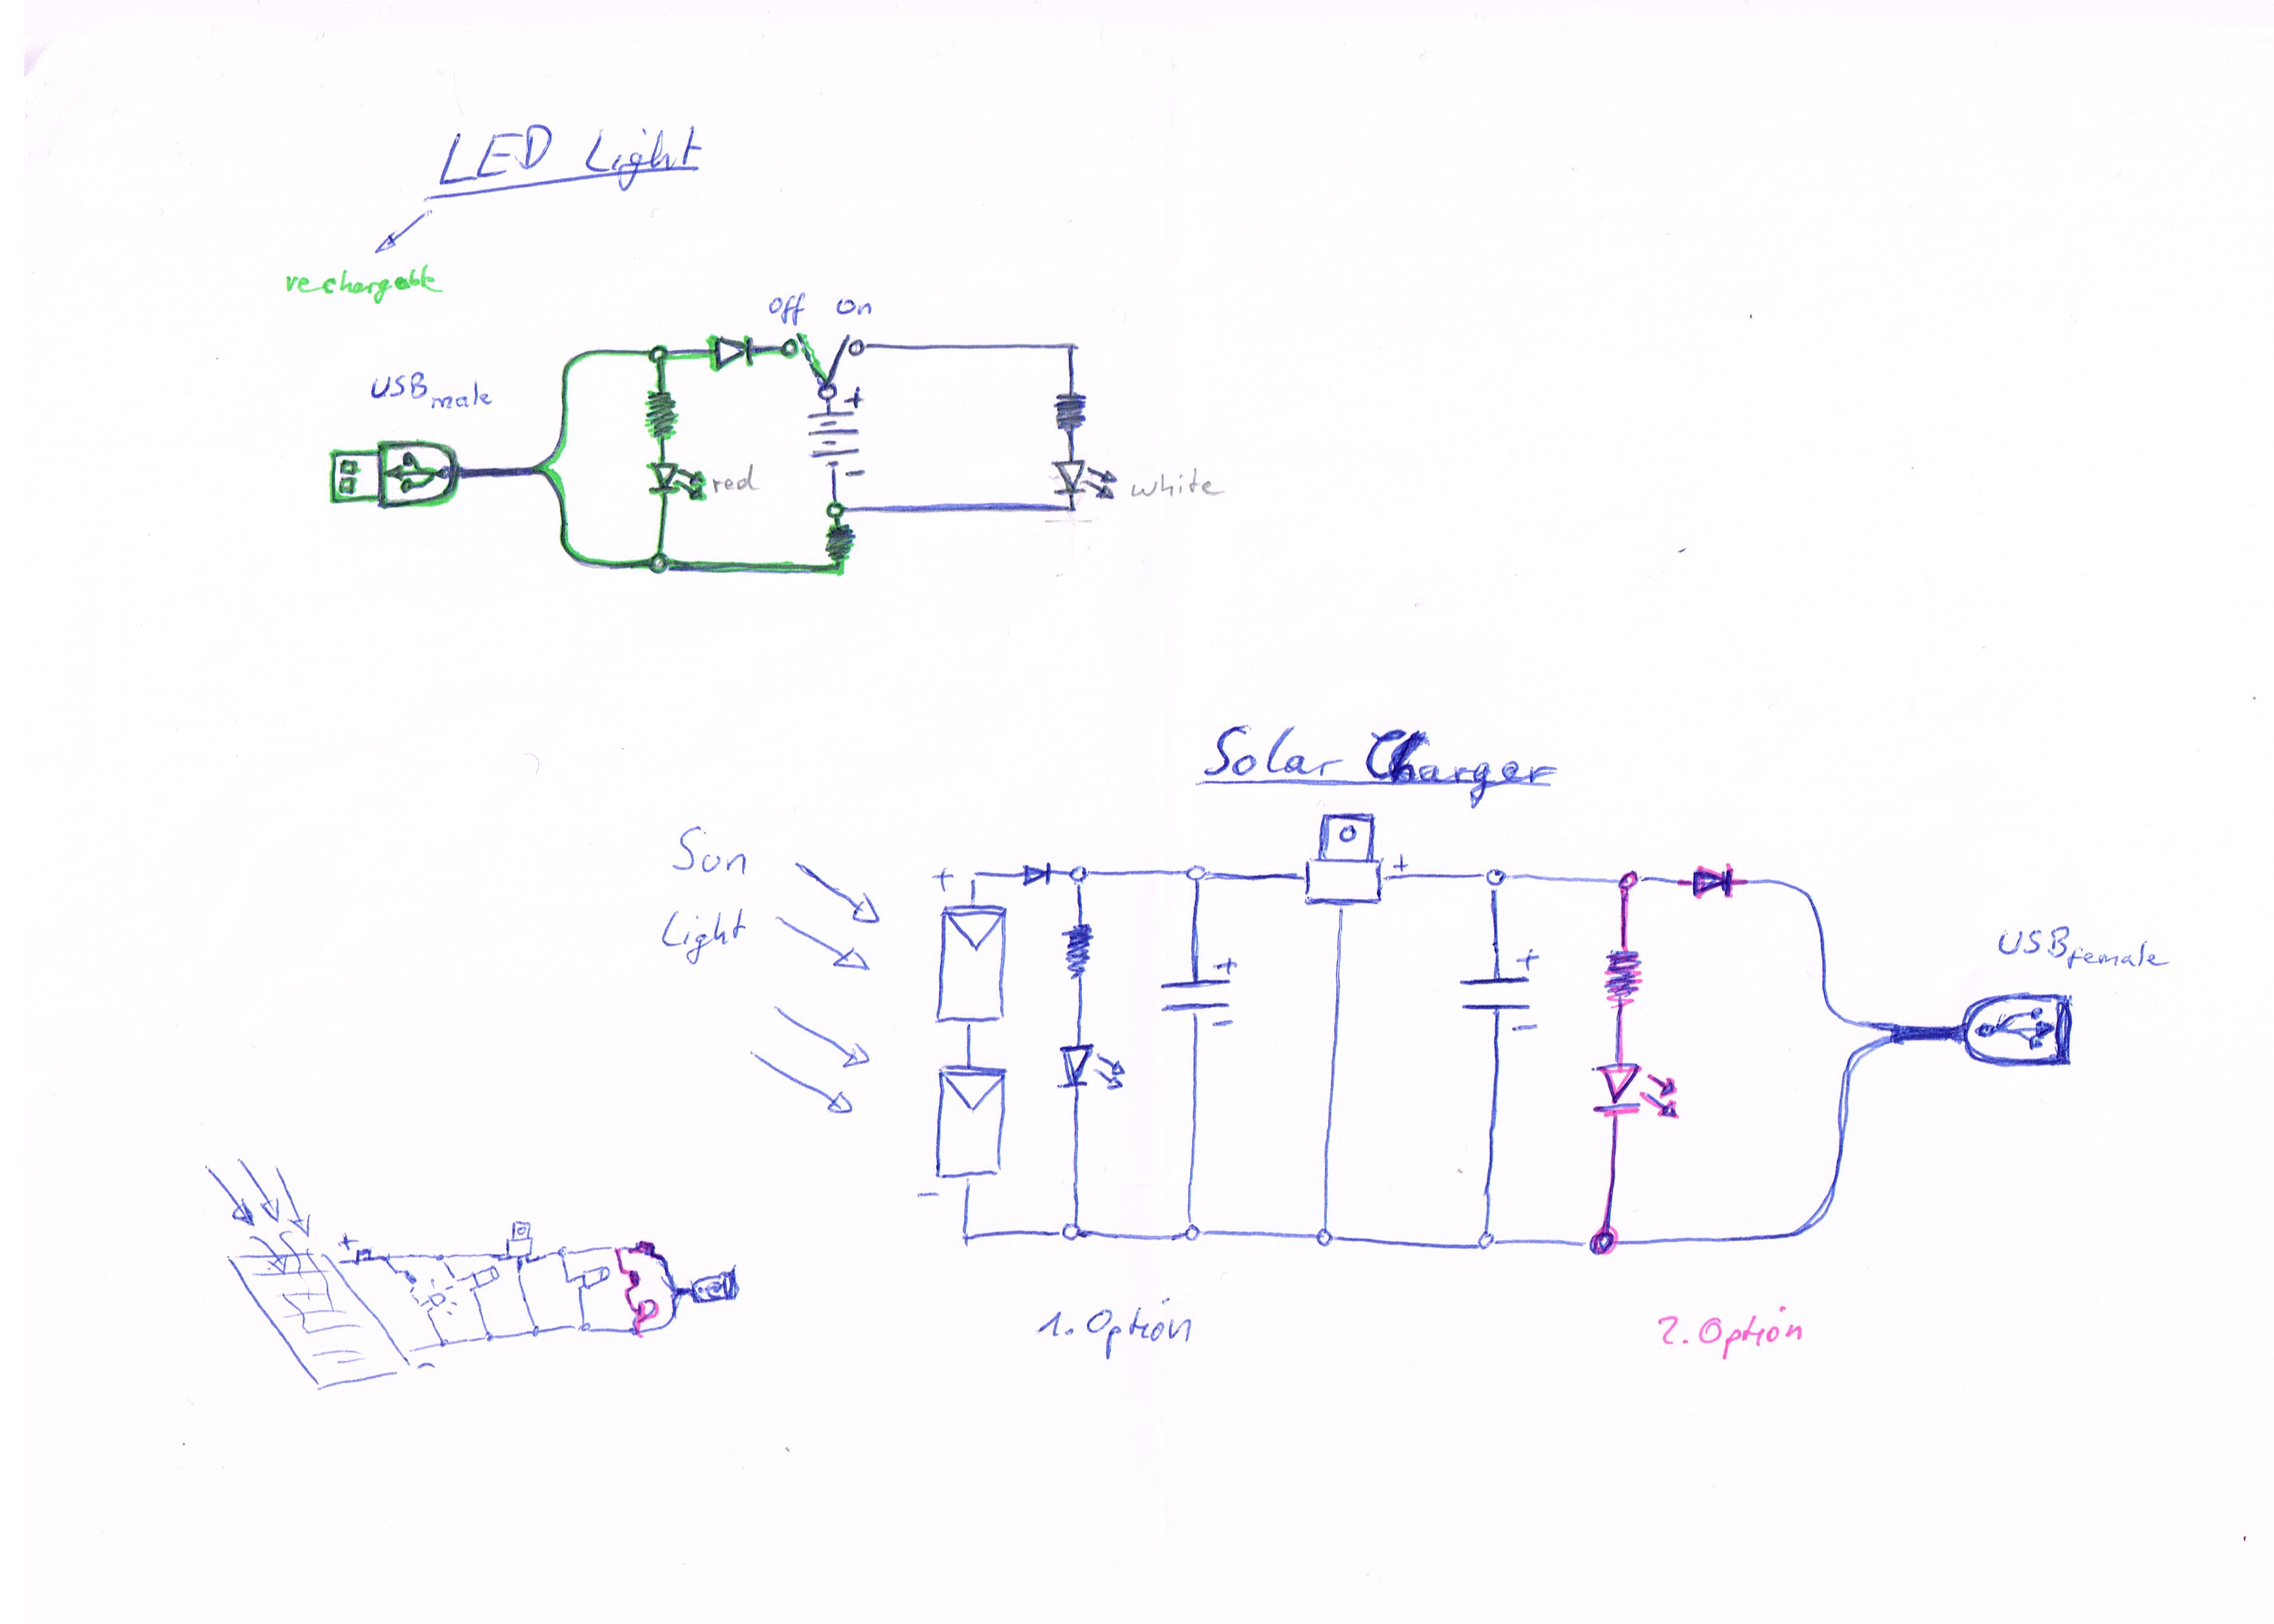 LED Light
rechargable
off on
USB male
+
red
-
white
Solar Charger
Sun
Light
+
+
USB female
+
+
-
-
-
+
-
1. Option
2. Option